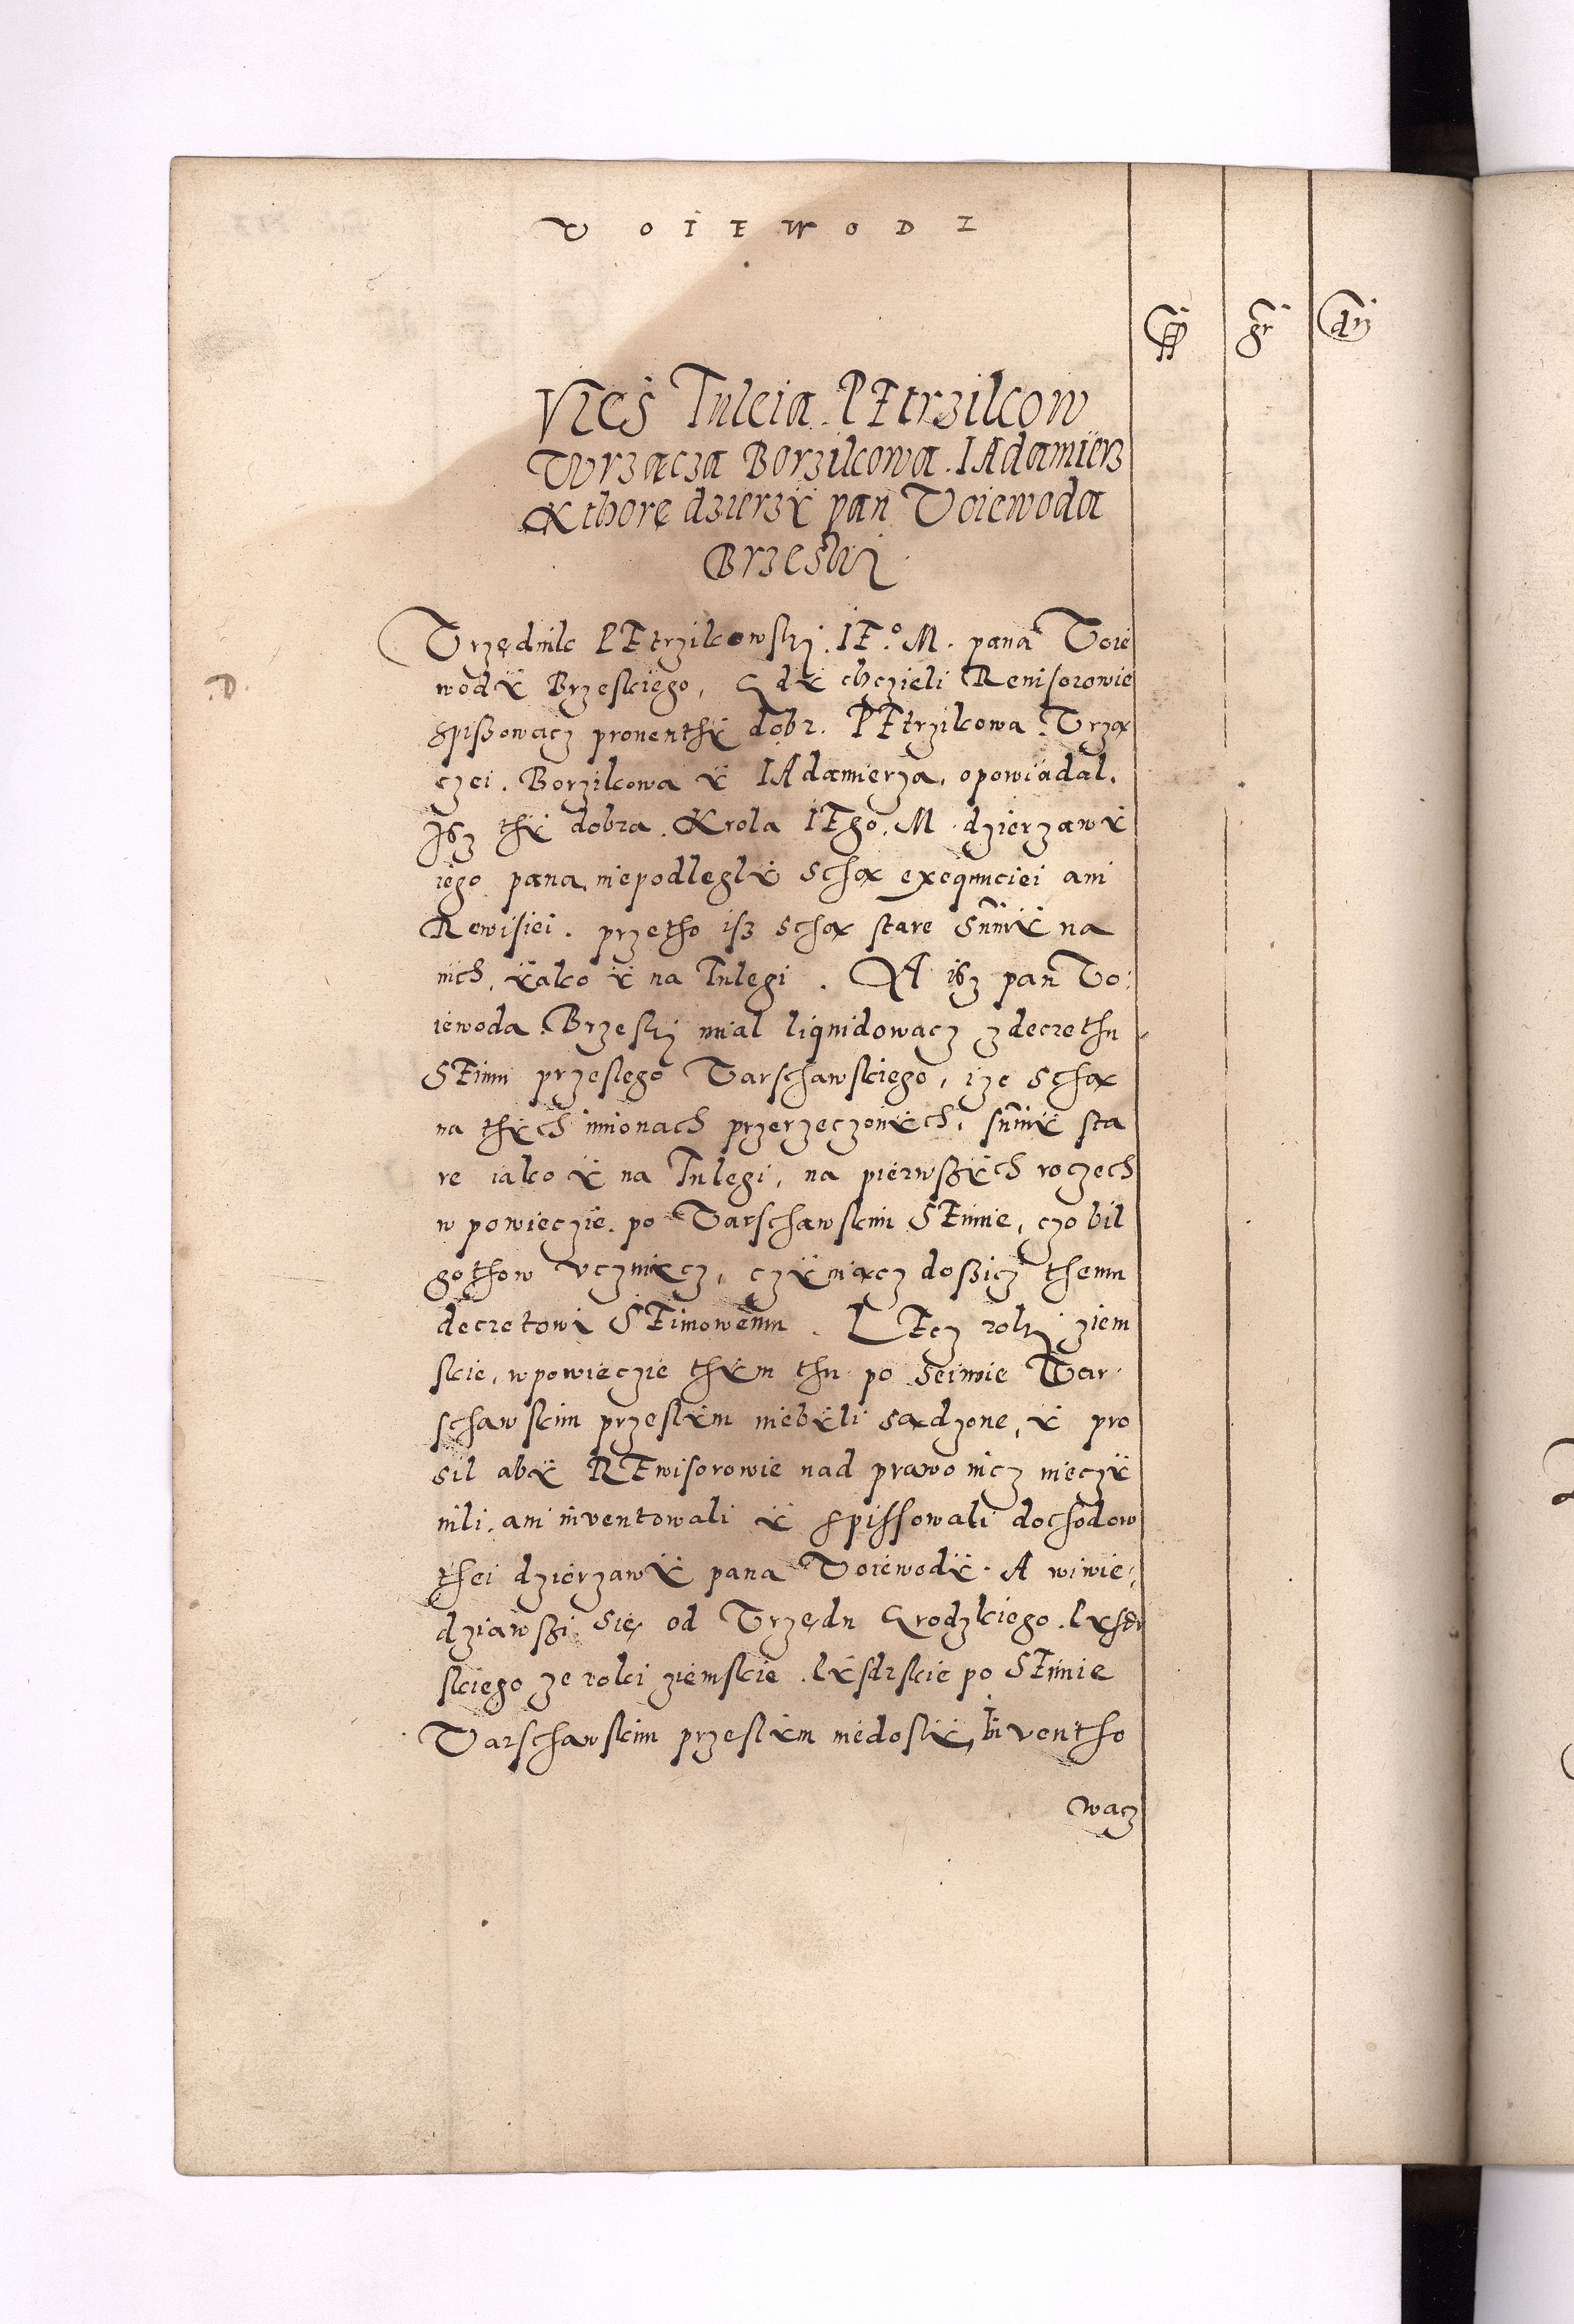 VOIEWODZ
fl gr dn
VIES Tulcia. PEtrzilcow
Vurzącza Borzikowa. IAdamierz
Kthorę dzierżÿ pan Voiewoda
Brzeski
Vrzędnik PEtrzikowski. IE.º M. pana Voie
wodÿ Brzeskiego, Gdÿ chczieli Reuisorowie
spisowacz prouenthÿ dobr. PEtrzikowa. Vrzą
czei. Borzikowa ÿ IAdamierza, opowiadal.
Isz thÿ dobra. Krola IEgo. M. dzierzawÿ
iego pana, niepodleglÿ schą exequuciei ani
Rewisiei. przetho isz schą stare summÿ na
nich, ÿako ÿ na Tulegi. A isz pan Vo:
iewoda Brzeski mial liquidowacz zdecrethu
SEimu przeslego Varschawskiego, ize schą
na thÿch imionach przerzeczonÿch, summÿ sta
re iako ÿ na Tulegi, na pierwszÿch roczech
w powieczie. po Varschawskim SEimie, czo bil
gothow vczynicz, czÿniącz doszicz themu
decretowi SEimowemu. LEcz roki ziem
skie, w powieczie thÿm thu po Seimie Var
schawskim przeslÿm niebÿli sądzone, ÿ pro
sil abÿ REwisorowie nad prawo nicz nieczÿ
nili, ani inventowali ÿ spissowali dochodow
thei dzierzawÿ pana Voiewodÿ. A wiwie,
dziawszi się od Vrzędu Grodzkiego. lÿsdr
skiego ze roki ziemskie. lÿsdrskie po SEimie
Varschawskim przeslÿm niedoslÿ, Inventho
wacz